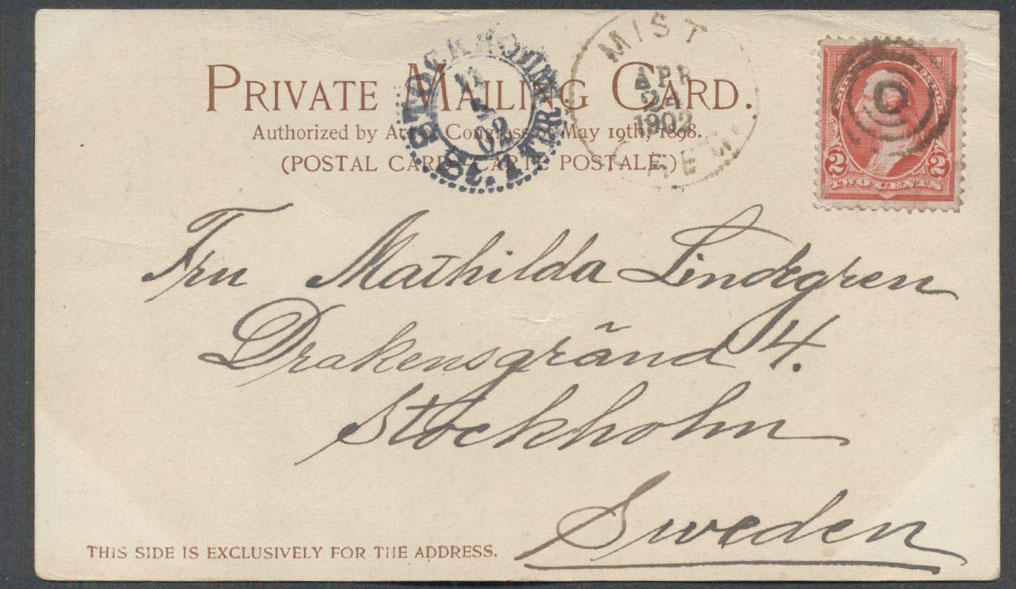 PRIVATE MAILING CARD.
Authorized by Act of Congress of May 19th, 1898.
(POSTAL CARD—CARTE POSTALE.)
STOCKHOLM
11
5
02
MIST
APR
1902
OREG.
2 2
TWO CENTS
Fru Mathilda Lindegren
Drakensgränd 4.
Stockholm
Sweden
THIS SIDE IS EXCLUSIVELY FOR THE ADDRESS.